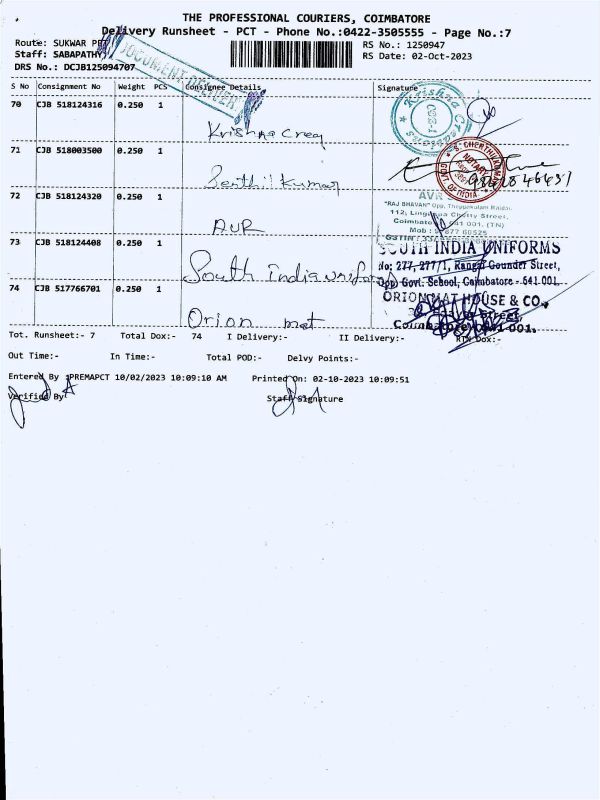 THE PROFESSIONAL COURIERS, COIMBATORE
Delivery Runsheet - PCT - Phone No.:0422-3505555 - Page No.:7
Route: SUKWAR PET
RS No.: 1250947
Staff: SABAPATHY
RS Date: 02-Oct-2023
DRS No.: DCJB125094707
DOCUMENT DELIVERY
S No Consignment No Weight PCS Consignee Details Signature
70 CJB 518124316 0.250 1
Krishna Creq
Krishna Creations
71 CJB 518003500 0.250 1
Senthil Kumar
NOTARY
GOVT OF INDIA
72 CJB 518124320 0.250 1
AVR
AVR
"RAJ BHAVAN" Opp. Theppakulam Maidan
112, Lingappa Chetty Street,
Coimbatore 641 001. (TN)
Mob :
GSTIN : 33
73 CJB 518124408 0.250 1
South India uniforms
SOUTH INDIA UNIFORMS
No: 277, 277/1, Rangai Gounder Street,
Opp) Govt. School, Coimbatore - 641 001.
74 CJB 517766701 0.250 1
Orion mat
ORION MAT HOUSE & CO.,
Street,
Coimbatore - 641 001.
Tot. Runsheet:- 7 Total Dox:- 74 I Delivery:- II Delivery:- RTN Dox:-
Out Time:- In Time:- Total POD:- Delvy Points:-
Entered By :PREMAPCT 10/02/2023 10:09:10 AM Printed On: 02-10-2023 10:09:51
Verified By
Staff Signature